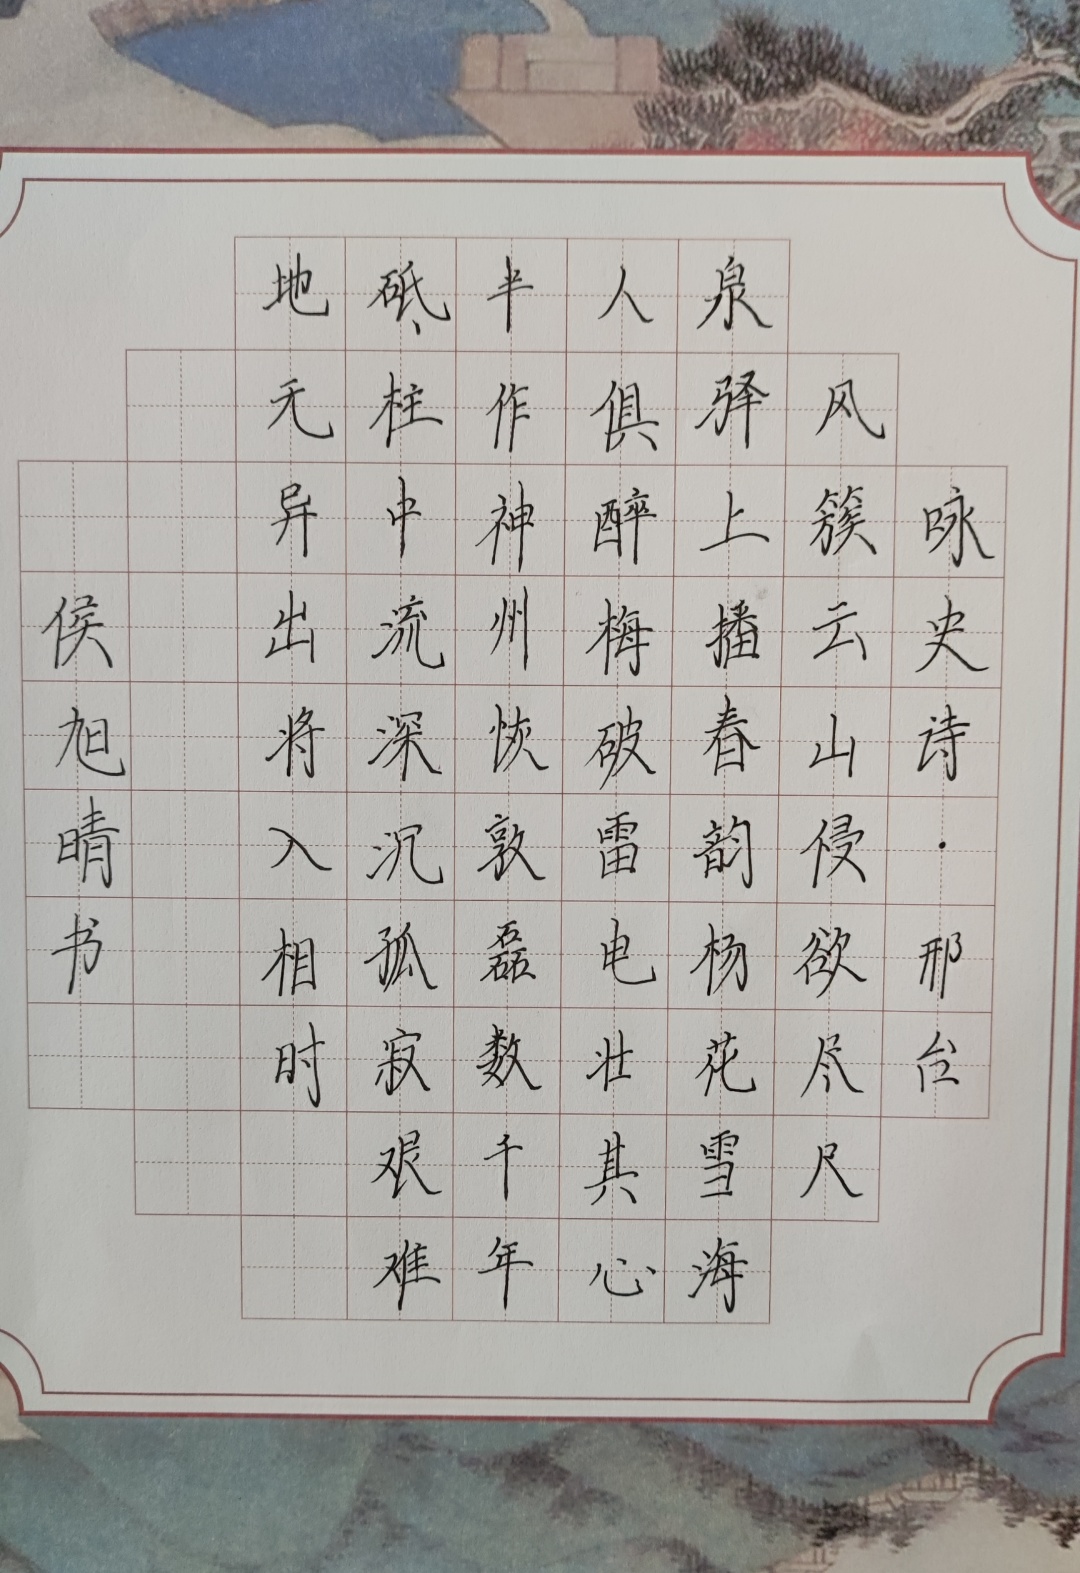 咏史诗·邢台
风簇云山侵欲尽尺
泉驿上播春韵杨花雪海
人俱醉梅破雷电壮其心
半作神州恢敦磊数千年
砥柱中流深沉孤寂艰难
地无异出将入相时
侯旭晴书